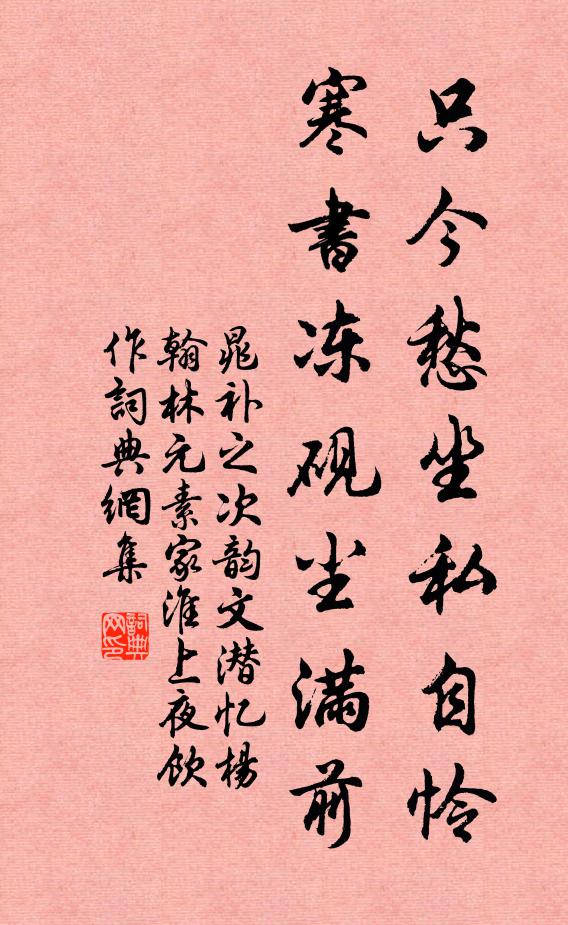 只今愁坐私自怜
寒書冻砚尘满前
晁补之次韵文潜忆杨
翰林元素家淮上夜饮
作詞典網集
詞典
网印